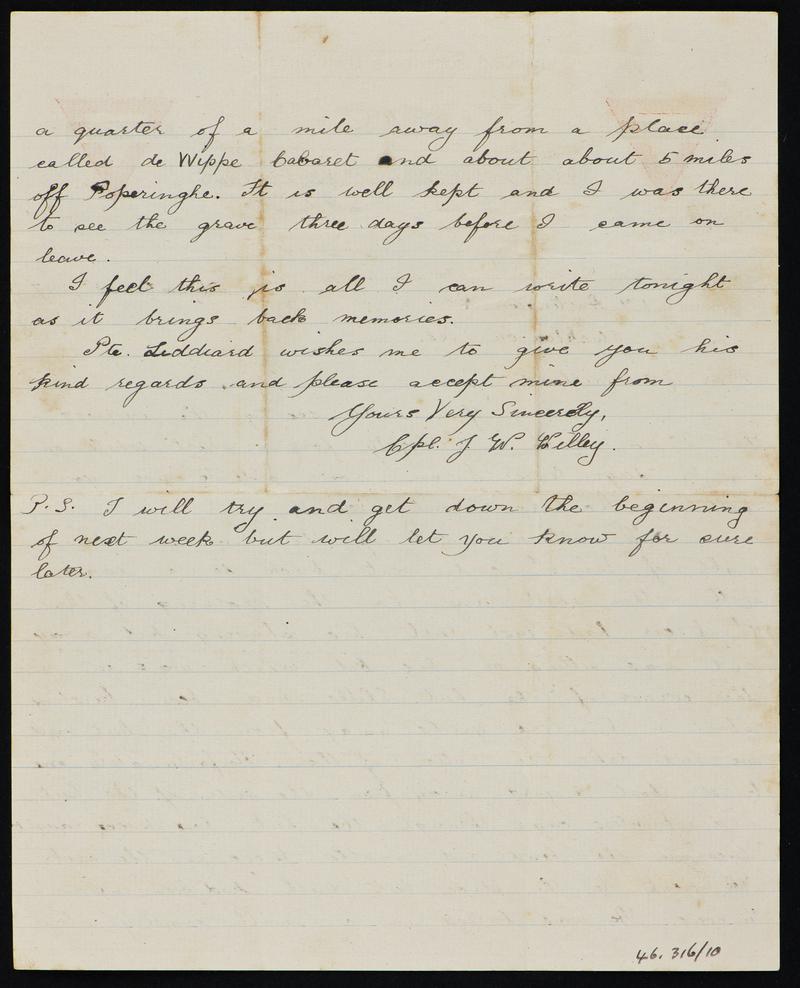 a quarter of a mile away from a place
called de Wippe Cabaret and about about 5 miles
off Poperinghe. It is well kept and I was there
to see the grave three days before I came on
leave.
I feel this is all I can write tonight
as it brings back memories.
Pte. Liddiard wishes me to give you his
kind regards and please accept mine from
Yours Very Sincerely,
Cpl. J W.
P.S. I will try and get down the beginning
of next week but will let you know for sure
later.
46. 316/10